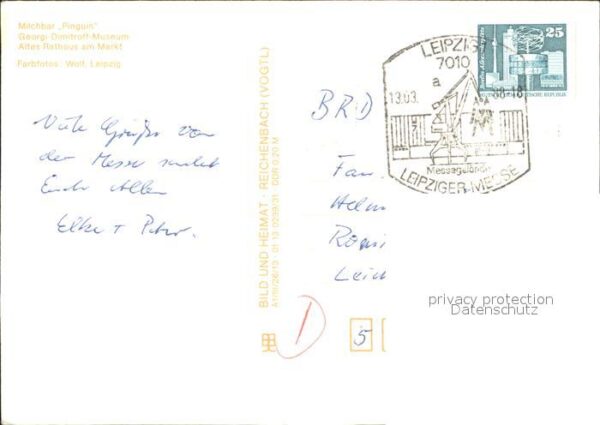 Milchbar „Pinguin"
Georgi-Dimitroff-Museum
Altes Rathaus am Markt
Farbfotos: Wolf, Leipzig
Viele Grüße von
der Messe sendet
Euch Allen
Elke + Peter.
BILD UND HEIMAT · REICHENBACH (VOGTL)
A1/III/26/13 · 01 13 0239/31 DDR 0,20 M
LEIPZIG
7010
a
13.03. 88-18
Messegelände
LEIPZIGER MESSE
25
DEUTSCHE DEMOKRATISCHE REPUBLIK
BRD
Fam
Helm
5
privacy protection
Datenschutz